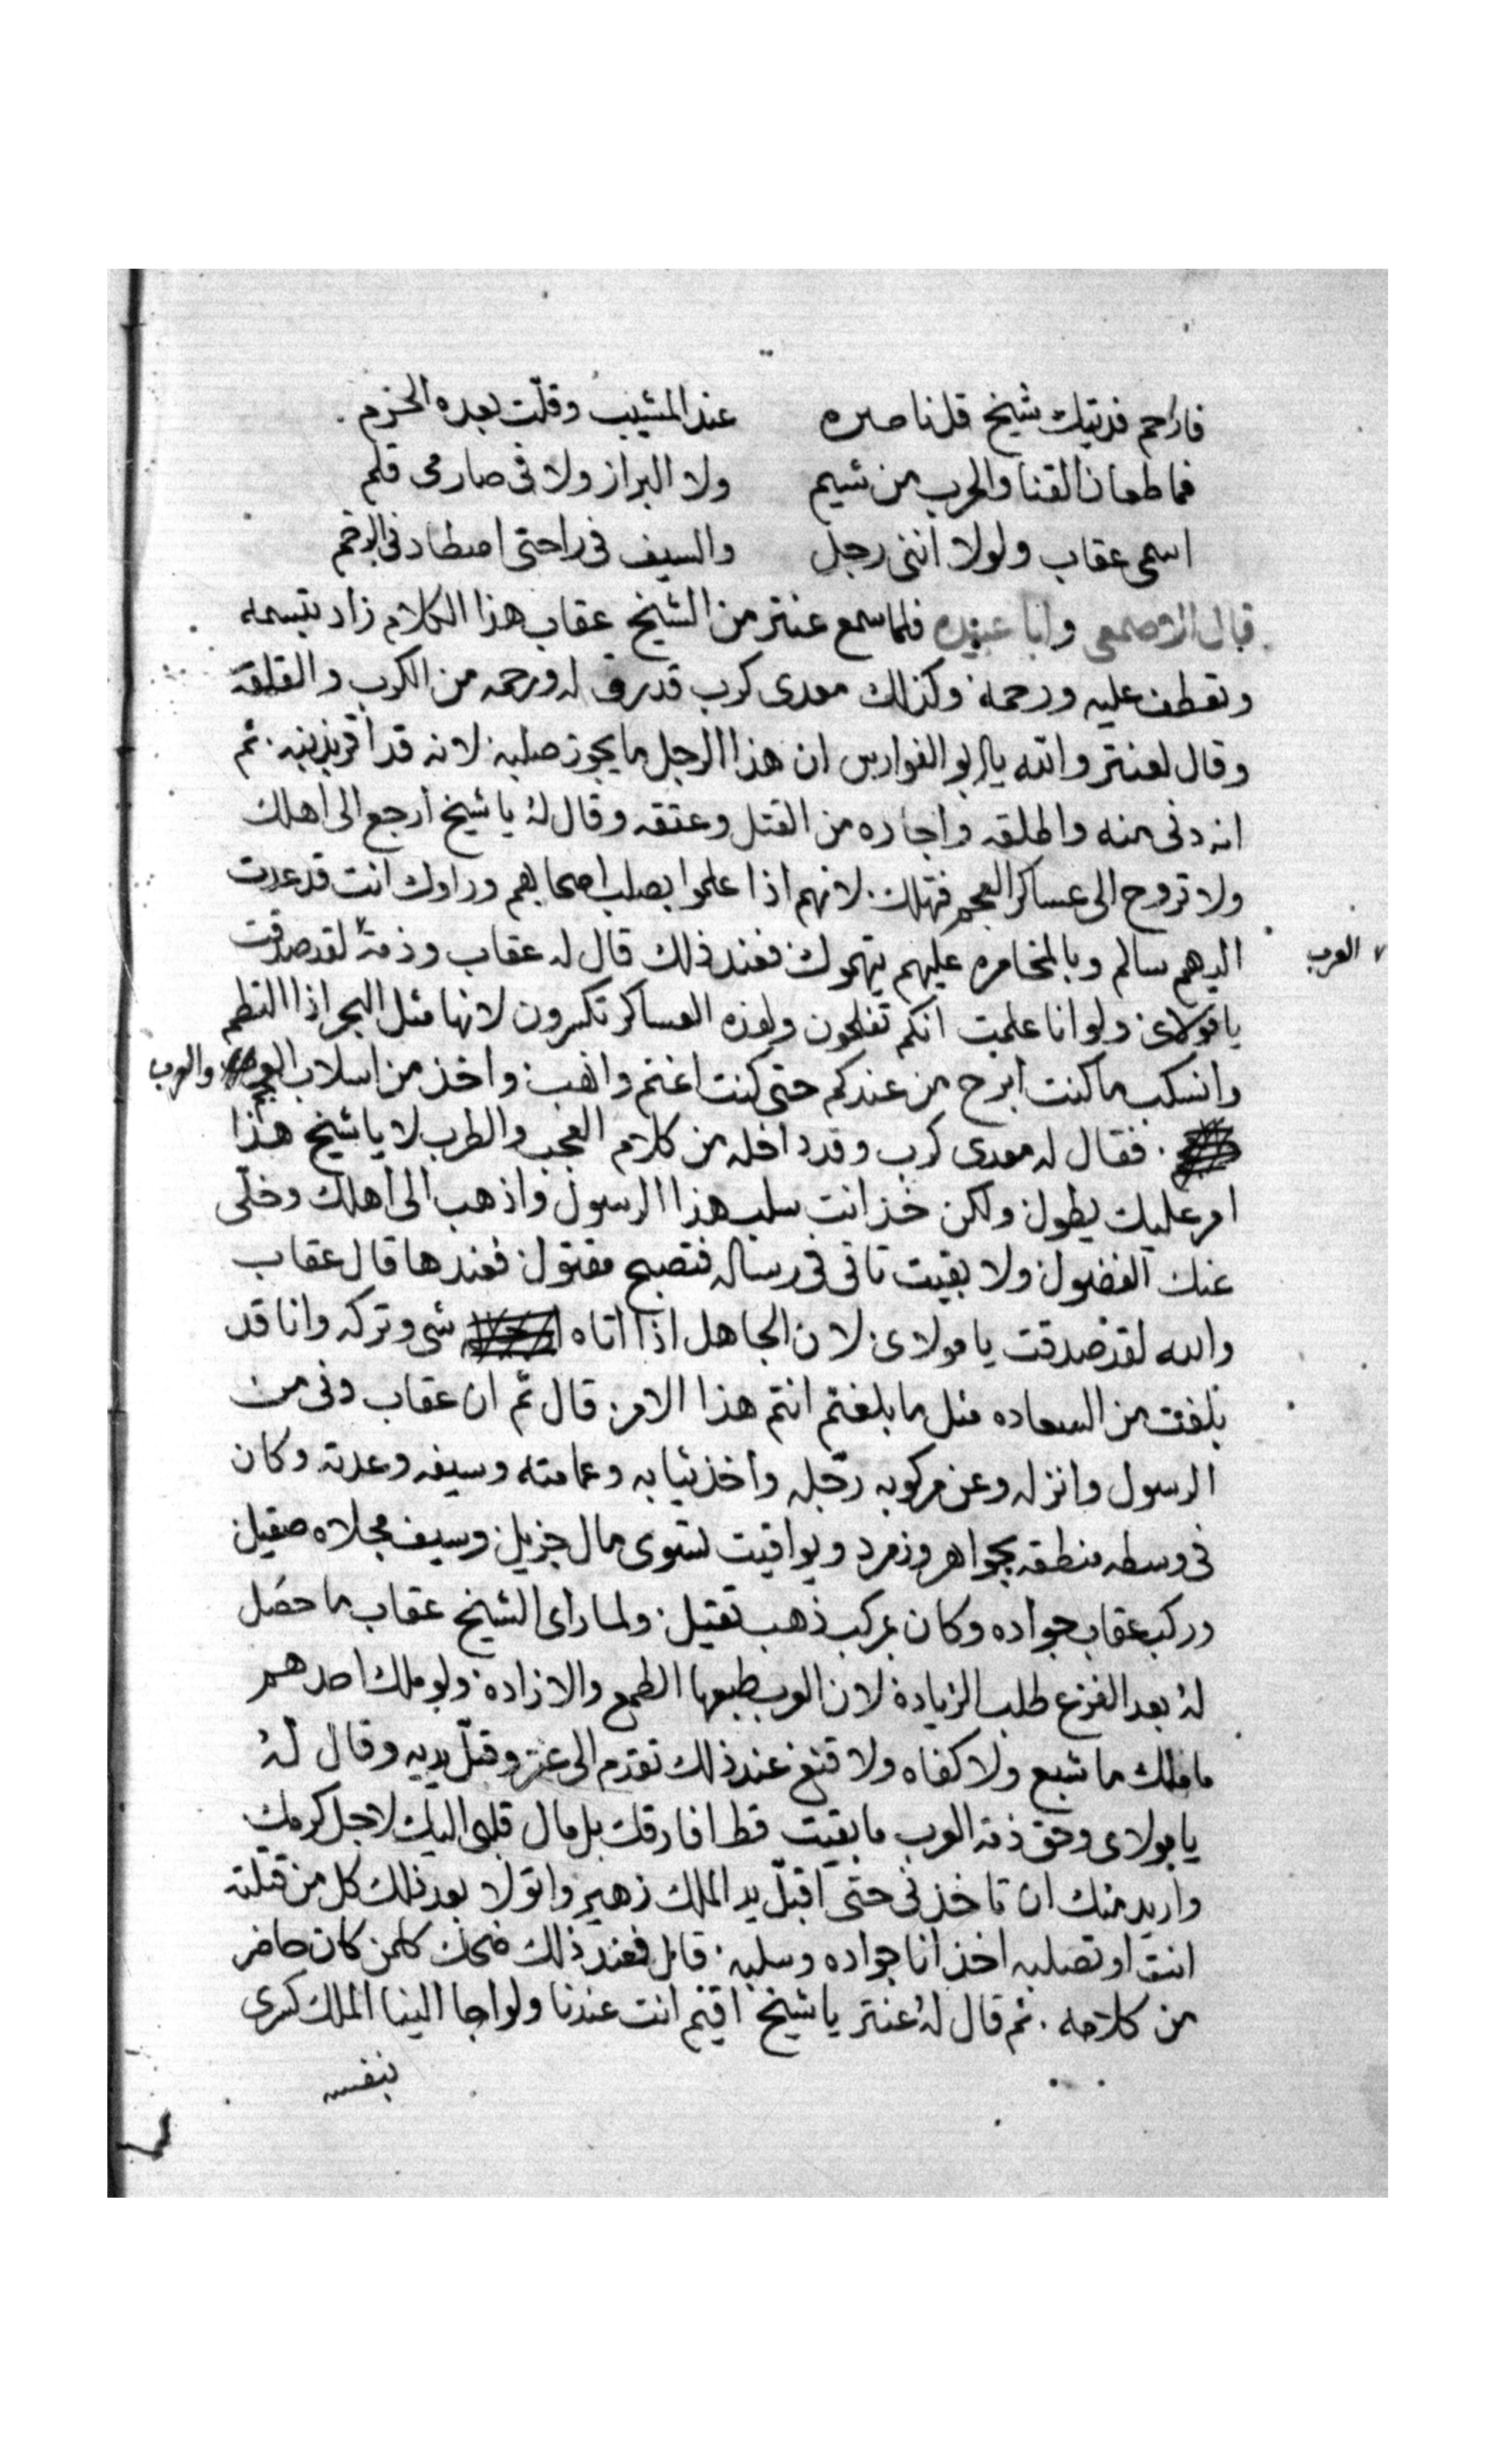 فارحم فديتك شيخ قل ناصره عند المشيب وقلّت بعده الخزم
فما طعان القنا والحرب من شيم ولا البراز ولا في صارمى قلم
اسمى عقاب ولولا انني رجل والسيف في راحتى اصطاد في الرخم
قال الاصمعي وابا عبيده فلما سمع عنتر من الشيخ عقاب هذا الكلام زاد بتبسمه
وتعطف عليه ورحمه وكذلك معدى كرب قد رق له ورحمه من الكرب والقلقه
وقال لعنتر والله يا ابو الفوارس ان هذا الرجل ما يجوز صلبه لانه قد اقر بذنبه. ثم
انه دنى منه واطلقه واجاره من القتل وعتقه وقال لهُ يا شيخ أرجع الى اهلك
ولا تروح الى عساكر العجم فتهلك. لانهم اذا علموا بصلب اصحابهم وراوك انت قد عدت
اليهم سالم وبالمخامره عليهم يتهموك فعند ذلك قال له عقاب وذمة لقد صدقت
العرب
يا مولاى ولو انا علمت انكم تفلحون ولهذه العساكر تكسرون لانها مثل البحر اذا التطم
وانسكب ما كنت أبرح من عندكم حتى كنت اغنم وانهب واخذ من اسلاب العجم والعرب
فقال له معدى كرب وقد داخله من كلامه العجب والطرب لا يا شيخ هذا
امر عليك يطول ولكن خذ انت سلب هذا الرسول واذهب الى اهلك وخلّى
عنك الفضول ولا بقيت تاتى فى رساله فتصبح مقتول فعندها قال عقاب
والله لقد صدقت يا مولاى لان الجاهل اذا اتاه شى وتركه وانا قد
بلغت من السعاده مثل ما بلغتم انتم هذا الامر. قال ثم ان عقاب دنى من
الرسول وانزله وعن مركوبه رجّله واخذ ثيابه وعمامته وسيفه وعدته وكان
فى وسطه منطقه بجواهر وزمرد ويواقيت تسوى مال جزيل وسيف مجلاه صقيل
وركب عقاب جواده وكان بمركب ذهب ثقيل. ولما راى الشيخ عقاب ما حصُل
لهُ بعد الفزع طلب الزيادة لان العرب طبعها الطمع والازاده ولو ملك احدهم
ما ملك ما شبع ولا كفاه ولا قنع عند ذلك تقدم الى عنتر وقبّل يديه وقال لهُ
يا مولاى وحق ذمة العرب ما بقيت قط افارقك بل مال قلبى اليك لاجل كرمك
واريد منك ان تاخذنى حتى اقبّل يد الملك زهير واتولا بعد ذلك كل من قتلته
انت او تصلبه اخذ انا جواده وسلبه. قال فعند ذلك ضحك كلمن كان حاضر
من كلامه. ثم قال لهُ عنتر يا شيخ اقيم انت عندنا ولو اجا الينا الملك كسرى
بنفسه